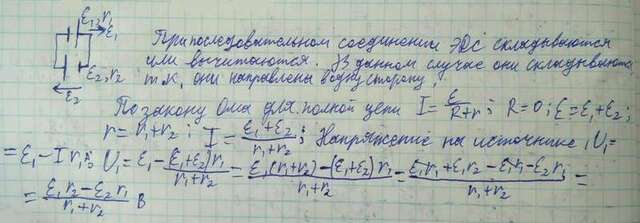 ℰ₁, r₁
ℰ₁
ℰ₂, r₂
ℰ₂
При последовательном соединении ЭДС складываются
или вычитаются. В данном случае они складываются
т.к. они направлены в одну сторону.
По закону Ома для полной цепи I = ℰ/(R+r); R=0; ℰ=ℰ₁+ℰ₂;
r = r₁+r₂; I = (ℰ₁+ℰ₂)/(r₁+r₂); Напряжение на источнике 1 U₁=
= ℰ₁ - I r₁; U₁ = ℰ₁ - (ℰ₁+ℰ₂) r₁/(r₁+r₂) = (ℰ₁(r₁+r₂) - (ℰ₁+ℰ₂) r₁)/(r₁+r₂) = (ℰ₁r₁+ℰ₁r₂-ℰ₁r₁-ℰ₂r₁)/(r₁+r₂) =
= (ℰ₁r₂ - ℰ₂r₁)/(r₁+r₂) В